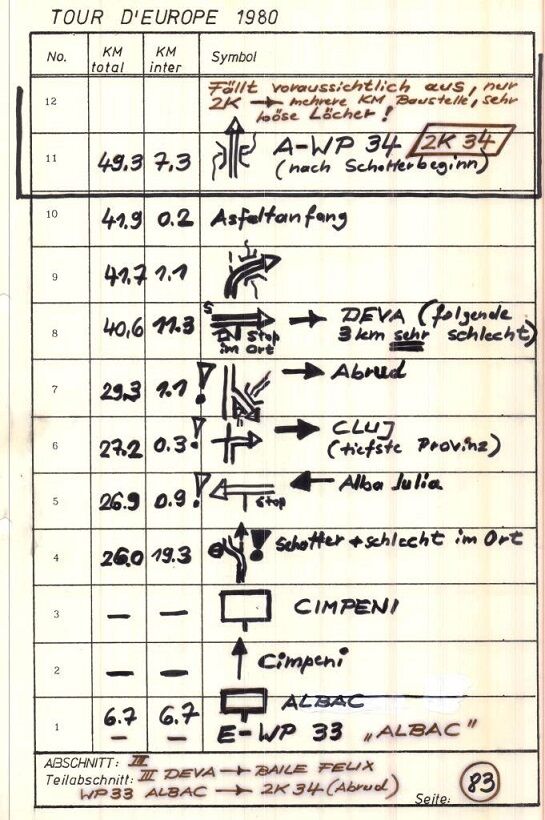 TOUR D'EUROPE 1980
No. KM total KM inter Symbol
12 Fällt voraussichtlich aus, nur
2K → mehrere KM Baustelle, sehr
böse Löcher!
11 49.3 7.3 A-WP 34 2K 34
(nach Schotterbeginn)
10 41.9 0.2 Asfeltanfang
9 41.7 1.1
8 40,6 11.3 S → DEVA (folgende
Stop 3 km sehr schlecht)
im Ort
7 29.3 1.1 ! → Abrud
6 27.2 0.3 ! → CLUJ
(tiefste Provinz)
5 26.9 0.9 ! Stop ← Alba Julia
4 26.0 19.3 ! Schotter + schlecht im Ort
3 — — CIMPENI
2 — — Cimpeni
ALBAC
1 6.7 6.7 E-WP 33 „ALBAC"
— —
ABSCHNITT: III
Teilabschnitt: III DEVA → BAILE FELIX
WP33 ALBAC → 2K 34 (Abrud) Seite: 83